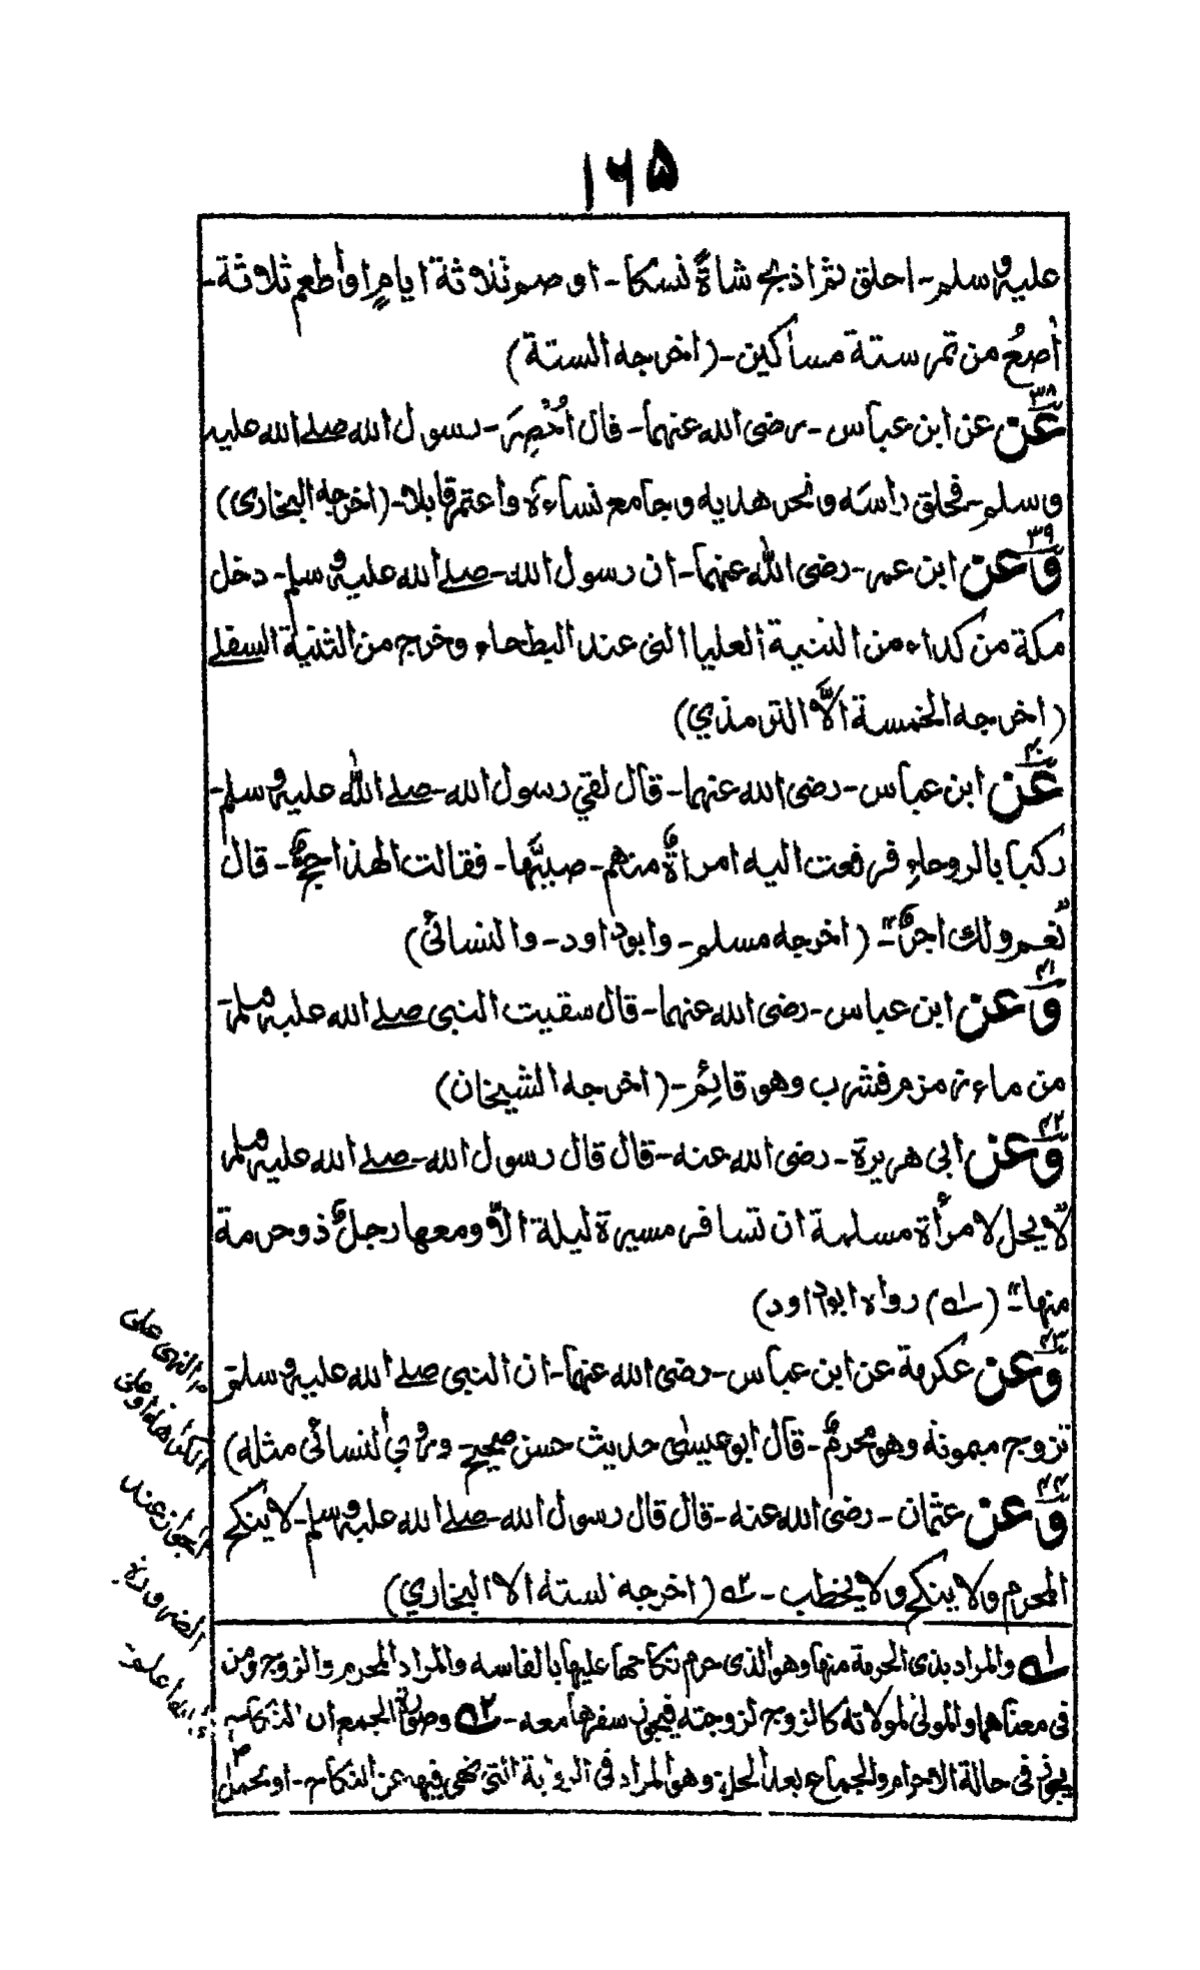 ١٦٥
عليه وسلم - احلق ثم اذبح شاةً نسكا - او صم ثلاثة ايامٍ او أطعم ثلاثة -
أصُعٍ من تمر ستة مساكين - (اخرجه الستة)
٣٨ عن عن ابن عباس - رضى الله عنهما - قال اُحْصِرَ - رسول الله صلے الله عليه
وسلم - فحلق راسَه ونحر هديه وجامع نساءه واعتمر قابلا - (اخرجه البخارى)
٣٩ وعن ابن عمر - رضى الله عنهما - ان رسول الله - صلے الله عليه وسلم - دخل
مكة من كداء من الثنية العليا التى عند البطحاء وخرج من الثنية السفلے
(اخرجه الخمسة الّا الترمذي)
٤٠ عن ابن عباس - رضى الله عنهما - قال لقي رسول الله - صلے الله عليه وسلم -
ركبا بالروحاءِ فرفعت اليه امرأةٌ منهم - صبيّها - فقالت الهذا حجٌّ - قال
نعم ولك اجرٌ" - (اخرجه مسلم - وابو داود - والنسائى)
٤١ وعن ابن عباس - رضى الله عنهما - قال سقيت النبى صلے الله عليه وسلم -
من ماء زمزم فشرب وهو قائِم - (اخرجه الشيخان)
٤٢ وعن ابى هريرة - رضى الله عنه - قال قال رسول الله - صلے الله عليه وسلم
لا يحل لامرأة مسلمة ان تسافر مسيرة ليلة الّا ومعها رجلٌ ذو حرمة
منها" - (١) رواه ابو داود)
٤٣ وعن عكرمة عن ابن عباس - رضى الله عنهما - ان النبى صلے الله عليه وسلم
تزوج ميمونة وهو محرمٌ - قال ابو عيسىٰ حديث حسن صحيح - وروي النسائى مثله)
٤٤ وعن عثمان - رضى الله عنه - قال قال رسول الله - صلے الله عليه وسلم - لا ينكح
المحرم ولا ينكح ولا يخطب - ٢ (اخرجه لستة الا البخاري)
١ والمراد بذى الحرمة منها وهو الذى حرم نكاحها عليها بالقاسه والمراد المحرم والزوج ومن
فى معناهما والمولىٰ لمولاته كالزوج لزوجته فيجوز سفرها معه - ٢ وصورة الجمع ان النكاح
يجوز فى حالة الاحرام والجماع بعد الحل وهو المراد فى الرواية التى نهى فيه عن النكاح - او يحمل
م النهى على
الكراهة او على
الجواز عند
الضرورة
الله اعلم -